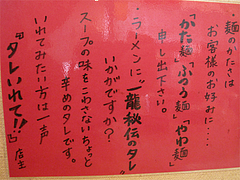 ・麺のかたさは
お客様のお好みに・・・
「かた麺」「ふつう麺」「やわ麺」
申し出下さい。
・ラーメンに"一龍秘伝のタレ"
いかがですか?
スープの味をこわさないちょっと
辛めのタレです。
いれてみたい方は一声
『タレいれて!!』店主